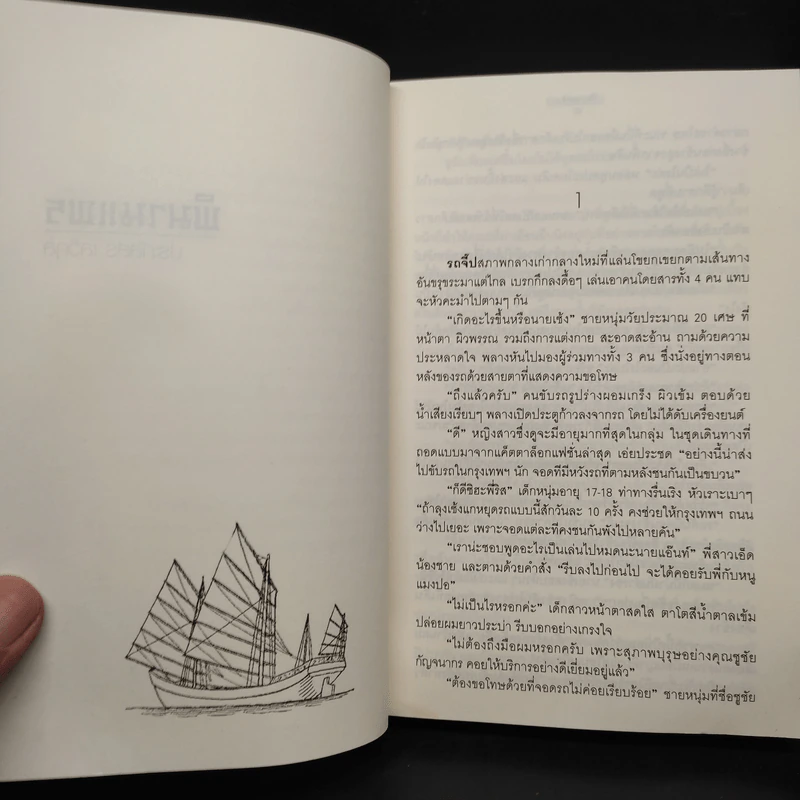 1
รถจี๊ปสภาพกลางเก่ากลางใหม่ที่แล่นโขยกเขยกตามเส้นทาง
อันขรุขระมาแต่ไกล เบรกกึกลงดื้อๆ เล่นเอาคนโดยสารทั้ง 4 คน แทบ
จะหัวคะมำไปตามๆ กัน
“เกิดอะไรขึ้นหรือนายเซ้ง” ชายหนุ่มวัยประมาณ 20 เศษ ที่
หน้าตา ผิวพรรณ รวมถึงการแต่งกาย สะอาดสะอ้าน ถามด้วยความ
ประหลาดใจ พลางหันไปมองผู้ร่วมทางทั้ง 3 คน ซึ่งนั่งอยู่ทางตอน
หลังของรถด้วยสายตาที่แสดงความขอโทษ
“ถึงแล้วครับ” คนขับรถรูปร่างผอมเกร็ง ผิวเข้ม ตอบด้วย
น้ำเสียงเรียบๆ พลางเปิดประตูก้าวลงจากรถ โดยไม่ได้ดับเครื่องยนต์
“ดี” หญิงสาวซึ่งดูจะมีอายุมากที่สุดในกลุ่ม ในชุดเดินทางที่
ถอดแบบมาจากแค็ตตาล็อกแฟชั่นล่าสุด เอ่ยประชด “อย่างนี้น่าส่ง
ไปขับรถในกรุงเทพฯ นัก จอดทีมีหวังรถที่ตามหลังชนกันเป็นขบวน”
“ก็ดีซิฮะพี่ริส” เด็กหนุ่มอายุ 17-18 ท่าทางรื่นเริง หัวเราะเบาๆ
“ถ้าลุงเซ้งแกหยุดรถแบบนี้สักวันละ 10 ครั้ง คงช่วยให้กรุงเทพฯ ถนน
ว่างไปเยอะ เพราะจอดแต่ละทีคงชนกันพังไปหลายคัน”
“เราน่ะชอบพูดอะไรเป็นเล่นไปหมดนะนายแอ๊นท์” พี่สาวเอ็ด
น้องชาย และตามด้วยคำสั่ง “รีบลงไปก่อนไป จะได้คอยรับพี่กับหนู
แมงปอ”
“ไม่เป็นไรหรอกค่ะ” เด็กสาวหน้าตาสดใส ตาโตสีน้ำตาลเข้ม
ปล่อยผมยาวประบ่า รีบบอกอย่างเกรงใจ
“ไม่ต้องถึงมือผมหรอกครับ เพราะสุภาพบุรุษอย่างคุณชูชัย
กัญจนากร คอยให้บริการอย่างดีเยี่ยมอยู่แล้ว”
“ต้องขอโทษด้วยที่จอดรถไม่ค่อยเรียบร้อย” ชายหนุ่มที่ชื่อชูชัย